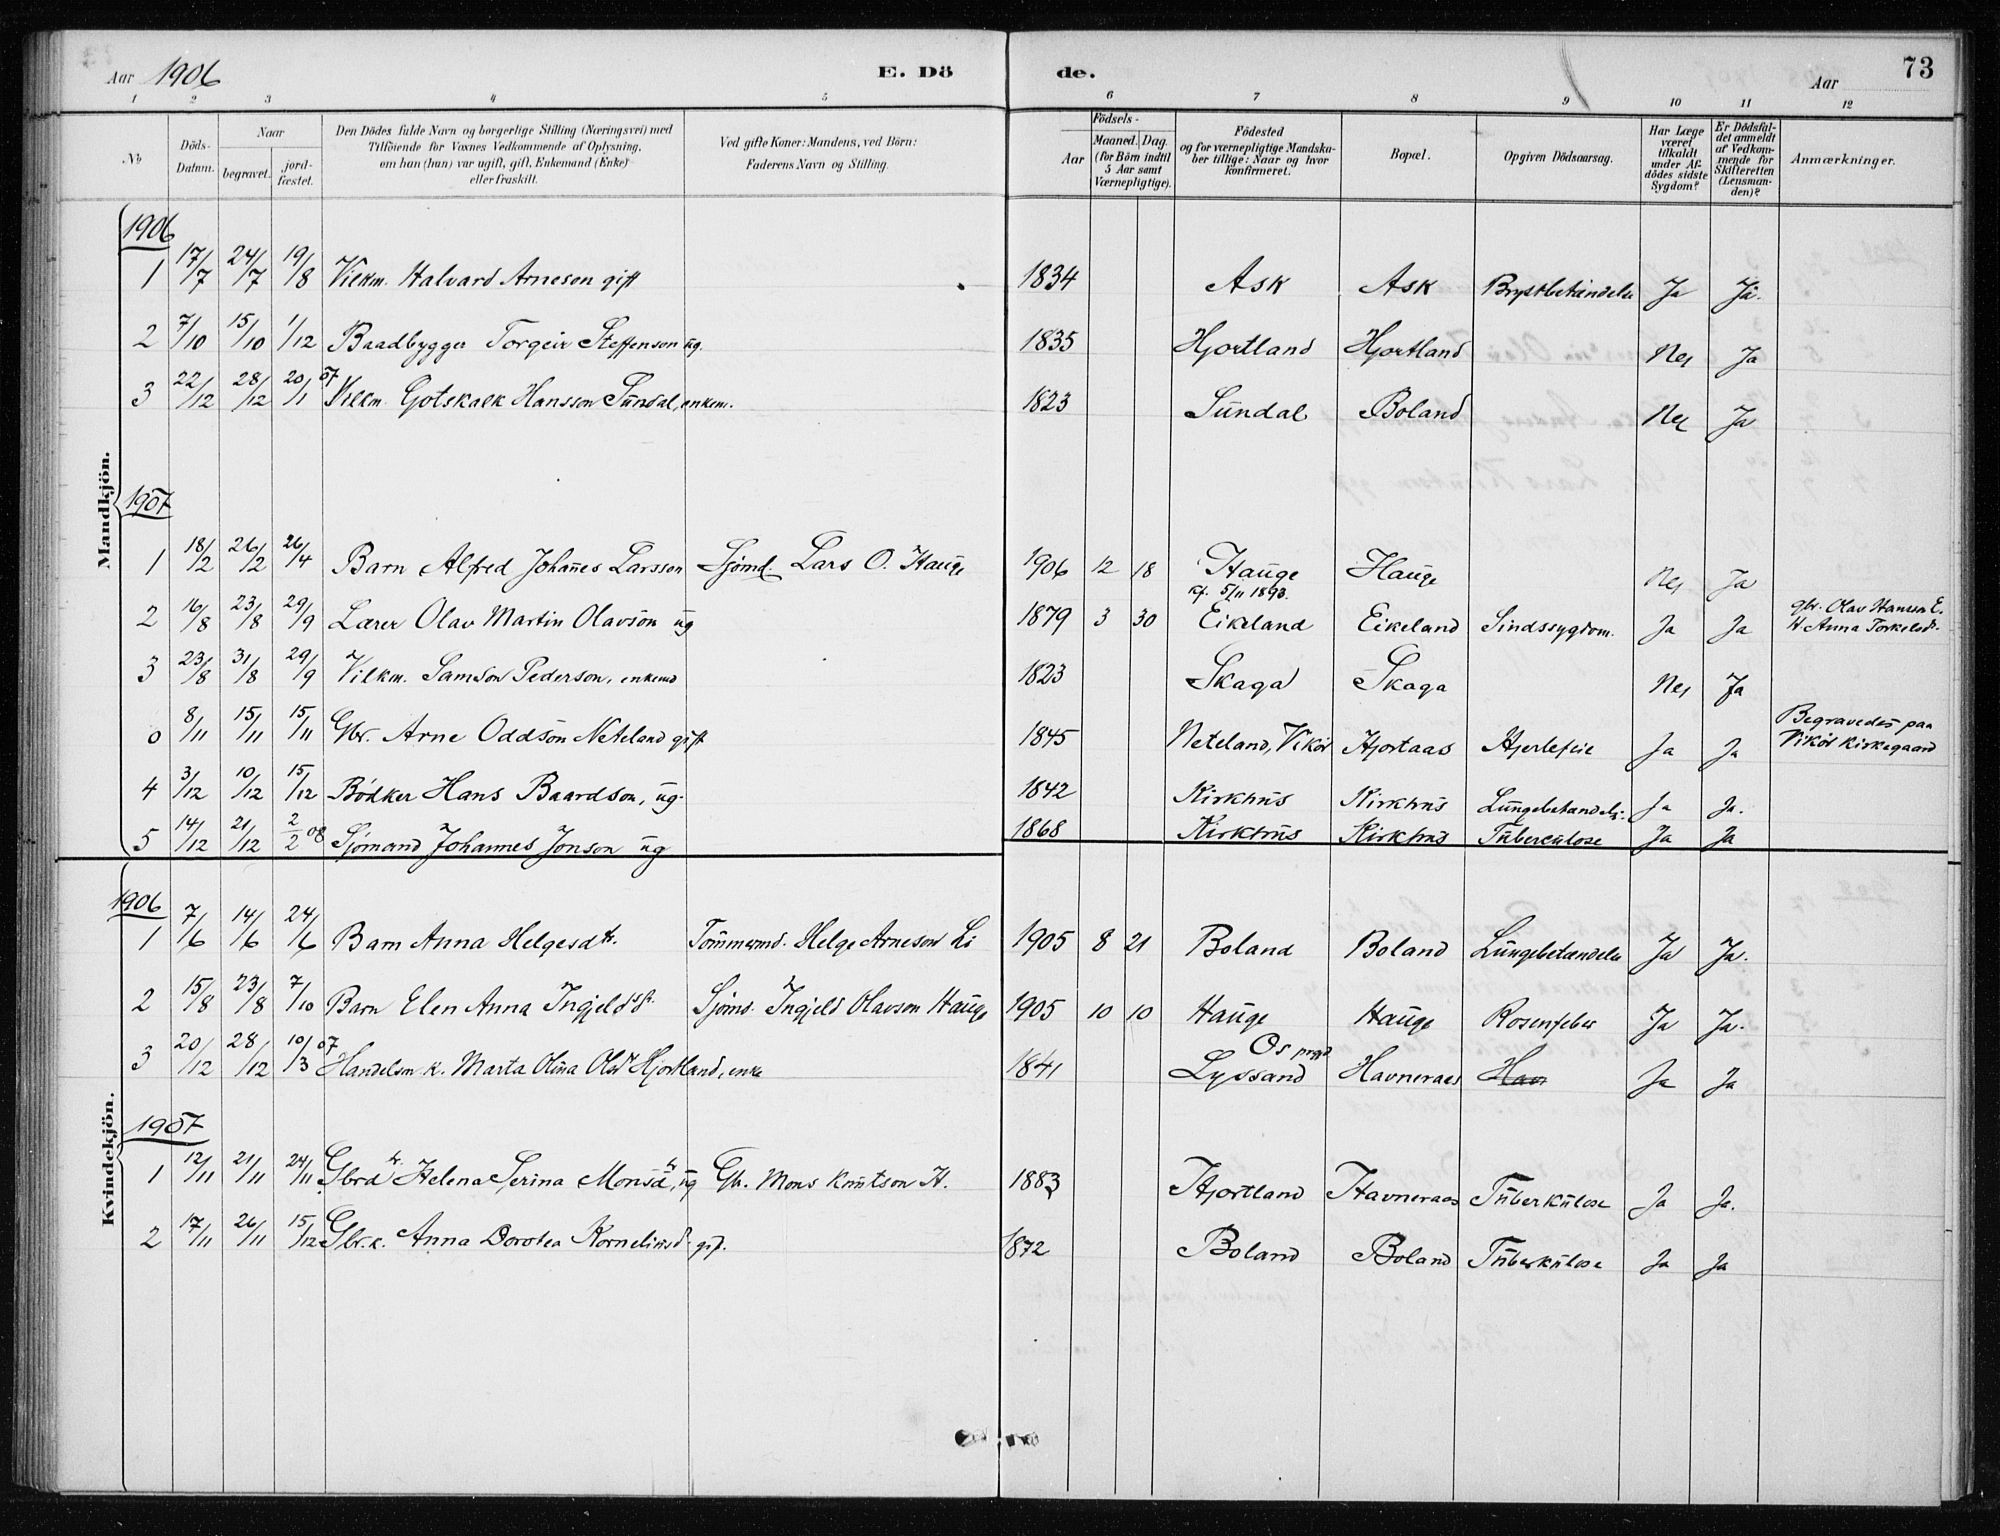 Aar 1906
E. Dö
de.
Aar
73
1 2 3 4 5 6 7 8 9 10 11 12
No
Döds-Datum.
Naar
begravet.
jord-fæstet.
Den Dödes fulde Navn og borgerlige Stilling (Næringsvei) med
Tilföiende for Voxnes Vedkommende af Oplysning,
om han (hun) var ugift, gift, Enkemand (Enke)
eller fraskilt.
Ved gifte Koner: Mandens, ved Börn:
Faderens Navn og Stilling.
Födsels-
Aar
Maaned. Dag.
(for Börn indtil
5 Aar samt
Værnepligtige).
Födested
og for værnepligtige Mandska-
ber tillige: Naar og hvor
konfirmeret.
Bopæl.
Opgiven Dödsaarsag.
Har Læge
været
tilkaldt
under Af-
dödes sidste
Sygdom?
Er Dödsfal-
det anmeldt
af Vedkom-
mende for
Skifteretten
(Lensman-
den)?
Anmærkninger.
Mandkjön.
1906
1 17/7 24/7 19/8 Vilkm. Halvard Arneson gift 1834 Ask Ask Brystbetændelse Ja Ja.
2 7/10 15/10 1/12 Baadbygger Torgeir Steffenson ug. 1835 Hjortland Hjortland Nei Ja
3 22/12 28/12 20/1 07 Vilkm. Gotskalk Hansson Sundal, enkem. 1823 Sundal Boland Nei Ja
1907
1 18/2 26/2 26/4 Barn Alfred Johanes Larsson Sjömd. Lars O. Hauge 1906 12 18 Hauge Hauge Nei Ja
kf. 5/11 1893.
2 16/8 23/8 29/9 Lærer Olav Martin Olavson ug 1879 3 30 Eikeland Eikeland Sindssygdom. Ja Ja gbr. Olav Hansson E.
Anna Torkelsdr.
3 23/8 31/8 29/9 Vilkm. Samson Pederson, enkemd 1823 Skaga Skaga Nei Ja
0 8/11 15/11 15/11 Gbr. Arne Oddson Neteland gift 1845 Neteland, Vikör Hjortaas Hjertefeil Ja Ja Begravedes paa
Vikör kirkegaard
4 3/12 10/12 15/12 Bödker Hans Baardson, ug. 1842 Kirkhus Kirkhus Lungebetændelse Ja Ja.
5 14/12 21/12 2/2 08 Sjömand Johannes Jonson ug 1868 Kirkhus Kirkhus Tuberculose Ja Ja
Kvindekjön.
1906
1 7/6 14/6 24/6 Barn Anna Helgesdtr. Tömmermd. Helge Arneson Li 1905 8 21 Boland Boland Lungebetændelse Ja Ja.
2 15/8 23/8 7/10 Barn Elen Anna Ingjeldsdt. Sjömd. Ingjeld Olavson Hauge 1905 10 10 Hauge Hauge Rosenfeber Ja Ja.
3 20/12 28/12 10/3 07 Handelsm. k. Marta Olina Olsd Hjortland, enke 1841 Os prgd Lyssand Havneraas Hav Ja Ja
1907
1 12/11 21/11 24/11 Gbrdtr Helena Serina Monsdtr, ug Gbr. Mons Knutson H. 1883 Hjortland Havneraas Tuberkulose Ja Ja.
2 17/11 26/11 15/12 Gbr. k. Anna Dorotea Korneliusd gift. 1872 Boland Boland Tuberkulose Ja Ja